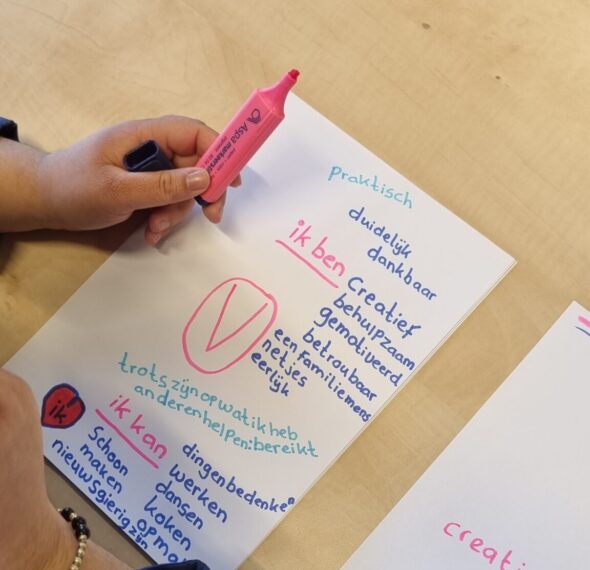 Aspa markeerstift
praktisch
duidelijk
dankbaar
ik ben
Creatief
behulpzaam
gemotiveerd
betroubaar
een familiemens
netjes
eerlijk
V
trots zijn op wat ik heb
anderen helpen: bereikt
ik
ik kan
dingen bedenken
Schoon
maken
werken
dansen
koken
nieuwsgierig zijn
creati